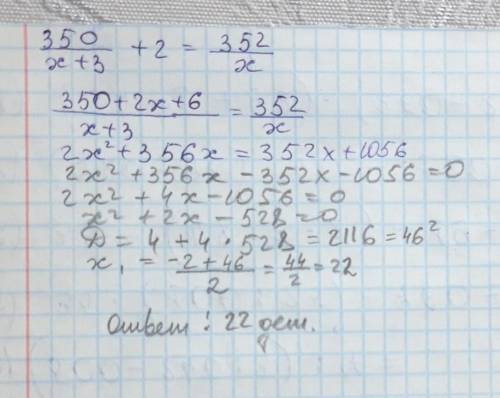 350/(x+3) + 2 = 352/x
(350+2x+6)/(x+3) = 352/x
2x² + 356x = 352x + 1056
2x² + 356x - 352x - 1056 = 0
2x² + 4x - 1056 = 0
x² + 2x - 528 = 0
D = 4 + 4 · 528 = 2116 = 46²
x₁ = (-2 + 46)/2 = 44/2 = 22
Ответ: 22 дет.